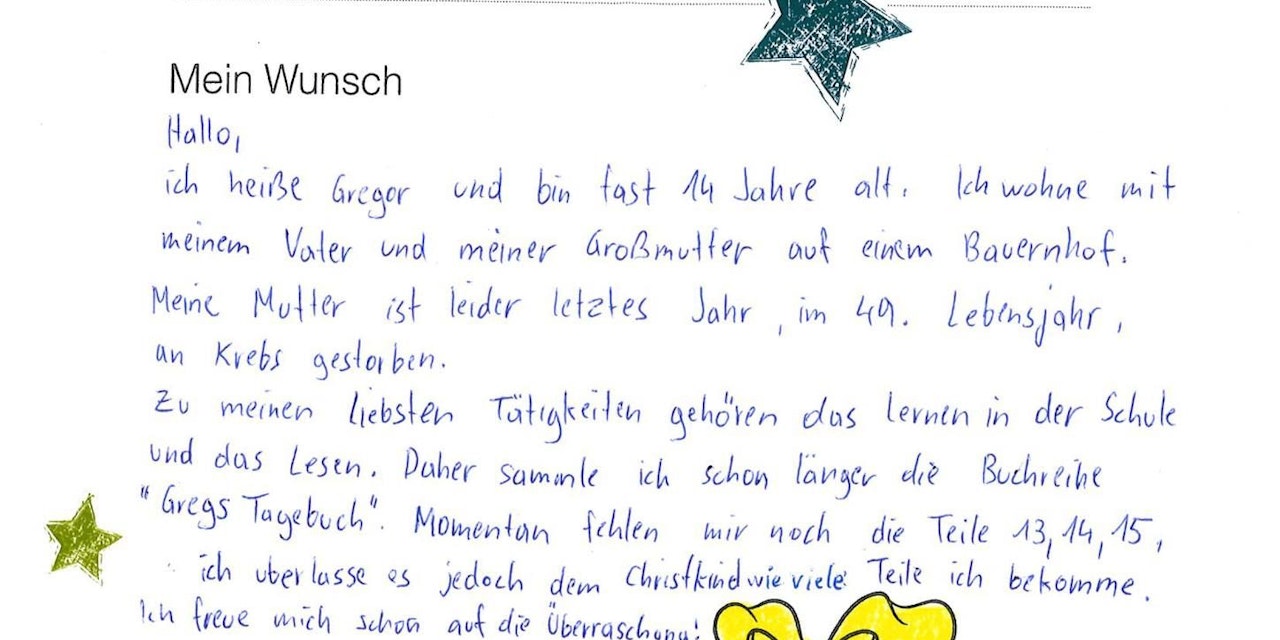 Mein Wunsch
Hallo,
ich heiße Gregor und bin fast 14 Jahre alt. Ich wohne mit
meinem Vater und meiner Großmutter auf einem Bauernhof.
Meine Mutter ist leider letztes Jahr, im 49. Lebensjahr,
an Krebs gestorben.
Zu meinen liebsten Tätigkeiten gehören das Lernen in der Schule
und das Lesen. Daher sammle ich schon länger die Buchreihe
"Gregs Tagebuch". Momentan fehlen mir noch die Teile 13, 14, 15,
ich überlasse es jedoch dem Christkind wie viele Teile ich bekomme.
Ich freue mich schon auf die Überraschung!